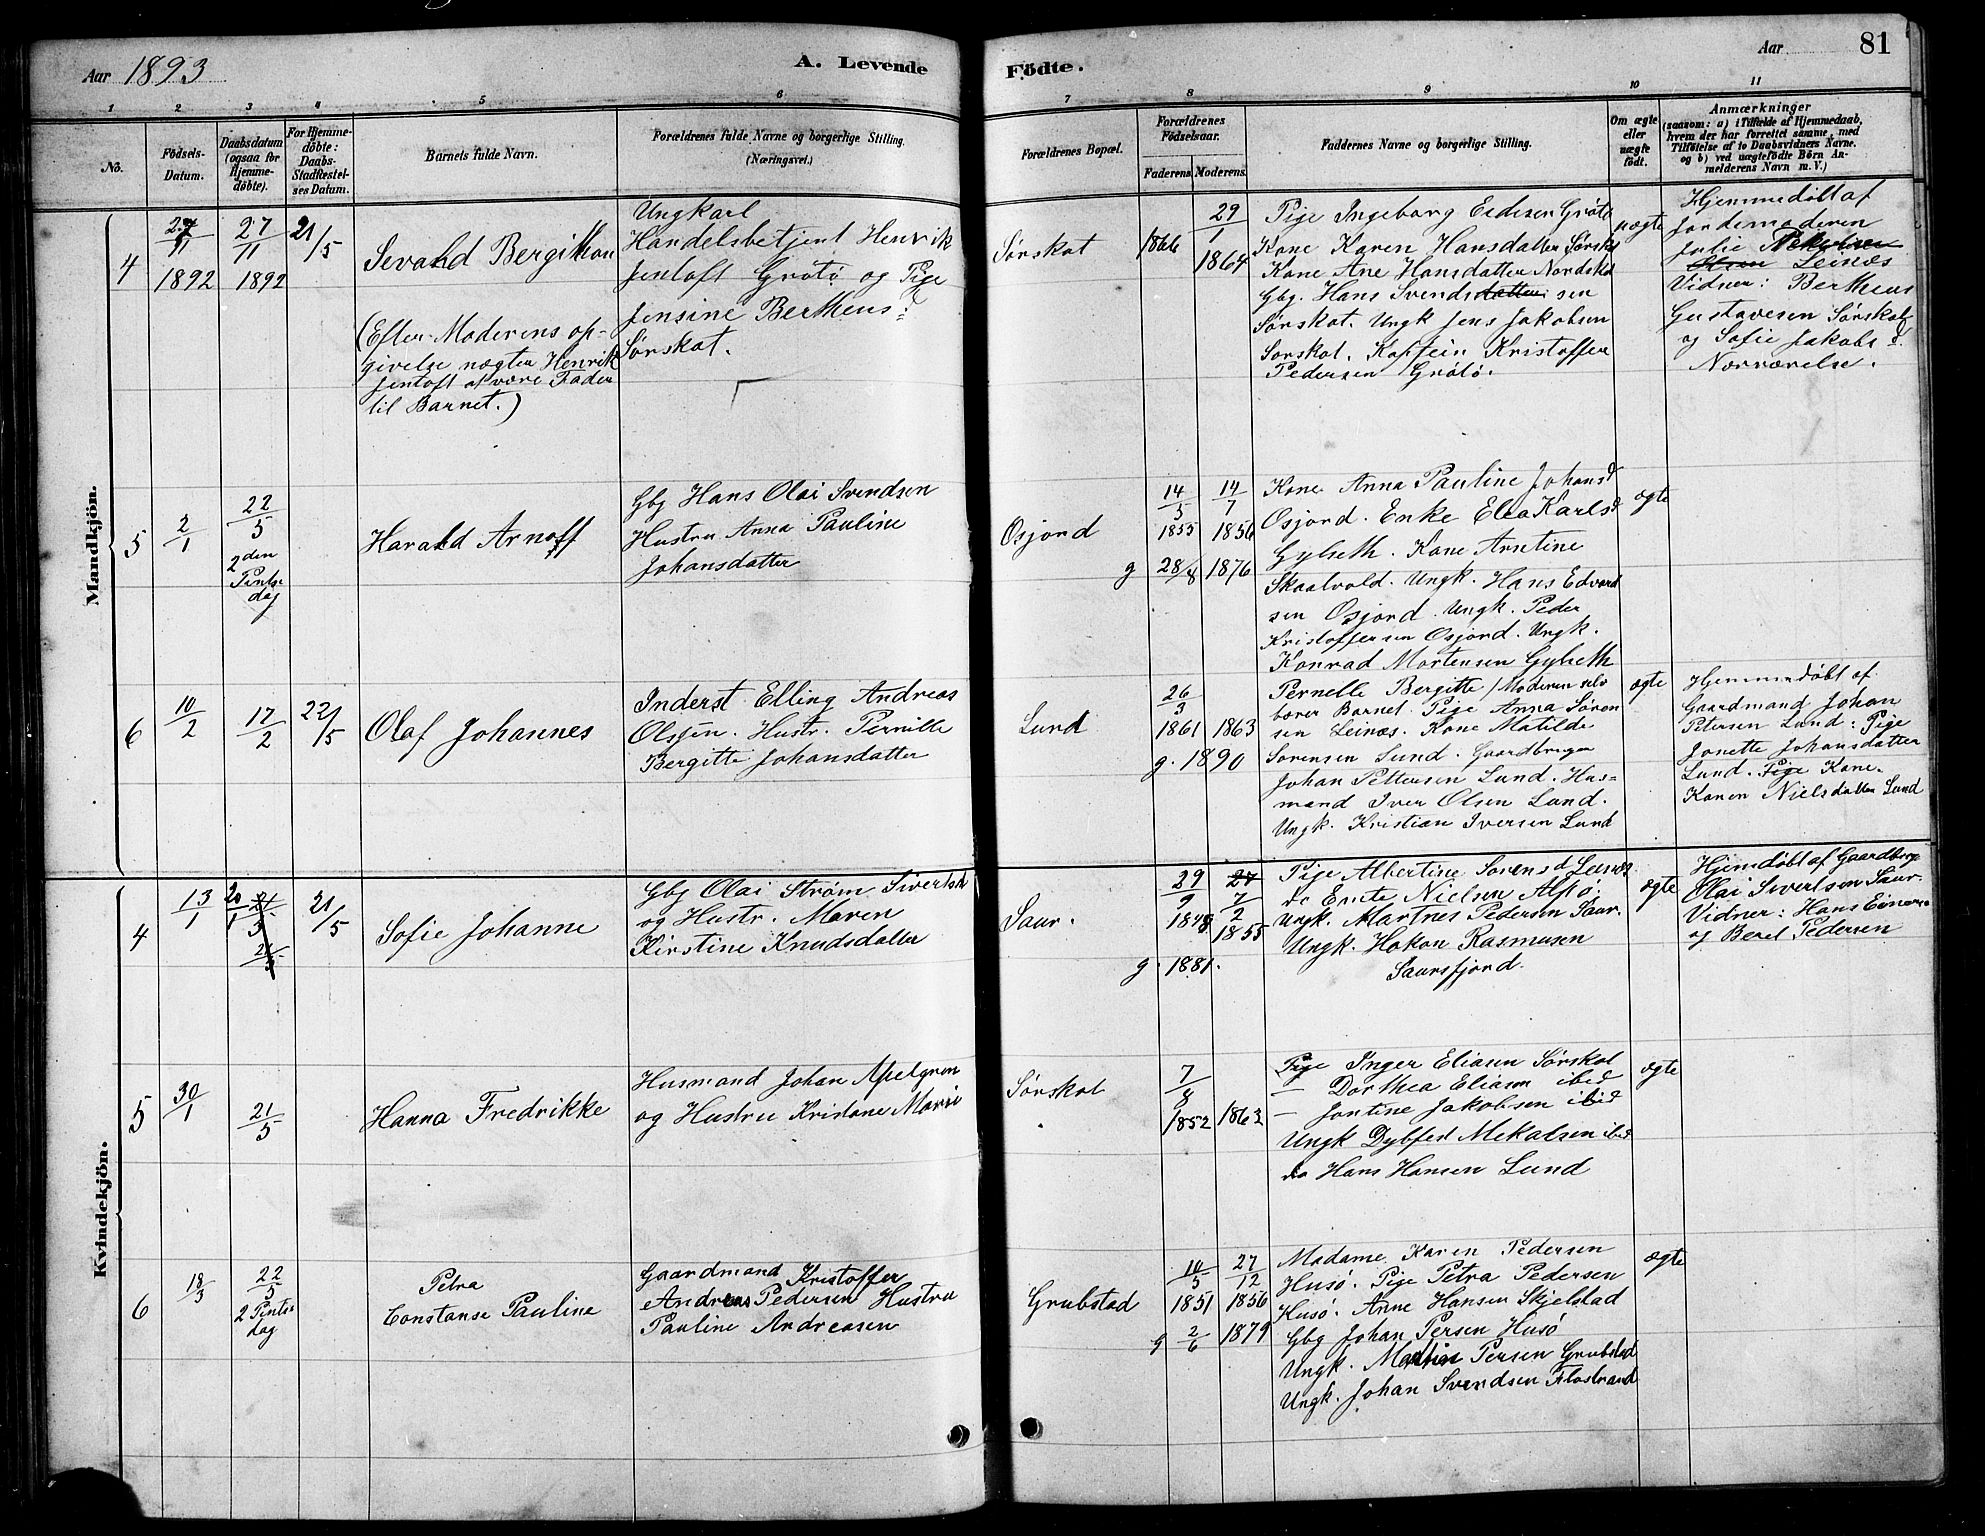 Aar 1893
A. Levende
Födte.
Aar
81
1
2
3
4
5
6
7
8
9
10
11
No.
Födsels-
Datum.
Daabsdatum
(ogsaa for
Hjemme-
döbte).
For Hjemme-
döbte:
Daabs-
Stadfæstel-
ses Datum.
Barnets fulde Navn.
Forældrenes fulde Navne og borgerlige Stilling.
(Næringsvei.)
Forældrenes Bopæl.
Forældrenes
Födselsaar.
Faderens.
Moderens.
Faddernes Navne og borgerlige Stilling.
Om ægte
eller
uægte
födt.
Anmærkninger
(saasom: a) i Tilfælde af Hjemmedaab,
hvem der har forrettet samme, med
Tilföielse af to Daabsvidners Navne.
og b) ved uægtefödte Börn An-
melderens Navn m. V.)
Mandkjön.
4
27/11
1892
27/11
1892
21/5
Sevald Bergithon
(Efter Moderens op-
givelse nægter Henrik
Jentoft at være Fader
til Barnet.)
Ungkarl
Handelsbetjent Henrik
Jentoft Grøtø og Pige
Jensine Bertheus d
Sørskot.
Sørskot
1866
29/1
1864
Pige Ingeborg Edesen Grøtø
Kone Karen Hansdatter Sørskot
Kone Ane Hansdatter Nordskot
Gbg. Hans Svendsdatter sen
Sørskot. Ungk Jens Jakobsen
Sørskot. Kaptein Kristoffer
Pedersen Grøtø.
uægte
Hjemmedøbt af
Jordemoderen
Julie Pedersen
Olsen Leines
Vidner: Bertheus
Gustavesen Sørskot
og Sofie Jakobs d.
Nærværelse.
5
2/1
22/5
2den
Pintse
dag
Harald Arnoff
Gbg Hans Olai Svendsen
Hustru Anna Pauline
Johansdatter
Osjord
14/5
1855
14/7
1856
g 28/8 1876
Kone Anna Pauline Johansd
Osjord. Enke Elea Karlsd
Gylseth. Kone Arntine
Skaalvold. Ungk. Hans Edvard
sen Osjord. Ungk. Peder
Kristoffersen Osjord. Ungk.
Konrad Mortensen Gylseth
ægte
6
10/2
17/2
22/5
Olaf Johannes
Inderst Elling Andreas
Olsen. Hustr. Pernille
Bergitte Johansdatter
Lund
26/3
1861
1863
g. 1890
Pernelle Bergitte / Moderen selv
bærer Barnet. Pige Anna Søren
sen Leinæs. Kone Matilde
Sørensen Lund. Gaardbruger
Johan Pettersen Lund. Hus-
mand Iver Olsen Lund.
Ungk. Kristian Iversen Lund
ægte
Hjemmedøbt af
Gaardmand Johan
Petersen Lund: Pige
Jonette Johansdatter
Lund. Pige Kone.
Karen Nielsdatter Lund
Kvindekjön.
4
13/1
20/1
21/5
21/5
21/5
Sofie Johanne
Gbg Olai Strøm Sivertsen
og Hustr. Maren
Kirstine Knudsdatter
Saur.
29/9
1848
27
7/2
1855
g. 1881.
Pige Albertine Sørensd Leines
do Ente Nielsen Alsø.
Ungk. Martnes Pedersen Saur.
Ungk. Hakon Rasmusen
Saursfjord.
ægte
Hjemdøbt af Gaardbrg
Olai Sivertsen Saur.
Vidner: Hans Einers.
og Beret Pedersen
5
30/1
21/5
Hanna Fredrikke
Husmand Johan Apelgren
og Hustru Kristane Marie
Sørskot
7/8
1852
1863
Pige Inger Eliasen Sørskot
— Dorthea Eliasen ibid
— Jontine Jakobsen ibid
Ungk Dybfest Mekalsen ibid
do Hans Hansen Lund
ægte
6
18/3
22/5
2 Pintse
dag
Petra
Constanse Pauline
Gaardmand Kristoffer
Andreas Pedersen Hustru
Pauline Andreasen
Grubstad
10/5
1851
27/12
1856
g 2/6 1879
Madame Karen Pedersen
Husø. Pige Petra Pedersen
Husø. Anne Hansen Skjelstad
Gbg Johan Persen Husø
Ungk. Martin Persen Grubstad
Ungk. Johan Svendsen Flostrand
ægte